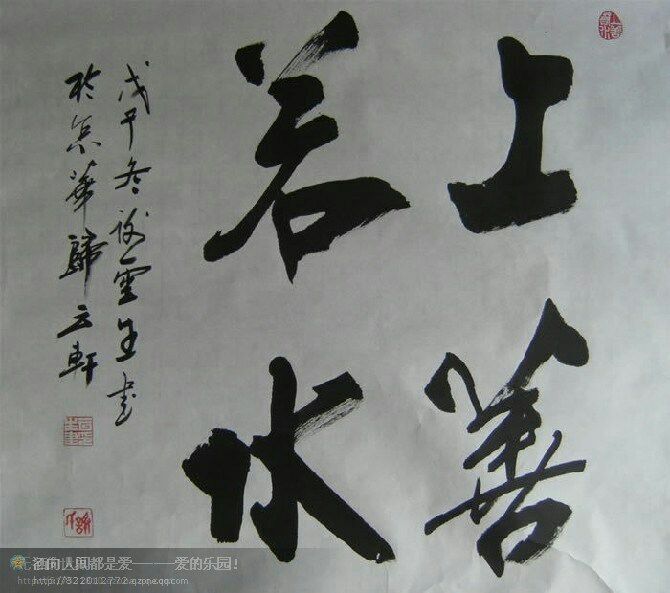 上善
若水
戊子冬 雲生书
於京華歸云軒
洒向人间都是爱———爱的乐园！
http://822012772.qzone.qq.com